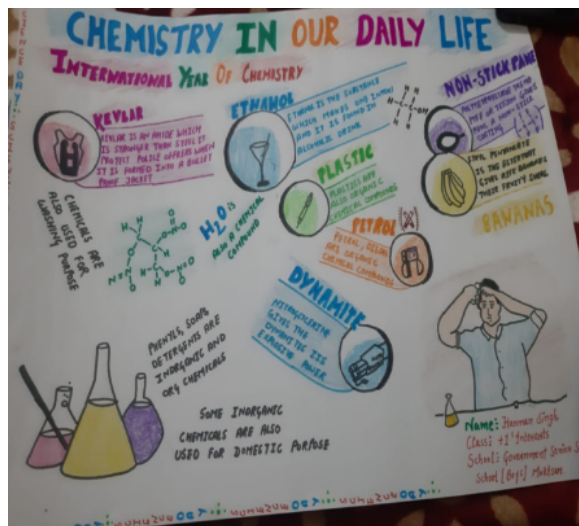 CHEMISTRY IN OUR DAILY LIFE
INTERNATIONAL YEAR OF CHEMISTRY
KEVLAR
KEVLAR IS AN AMIDE WHICH
IS STRONGER THAN STEEL IT
PROTECT POLICE OFFICERS WHEN
IT IS FORMED INTO A BULLET
PROOF JACKET
ETHANOL
ETHANOL IS THE SUBSTANCE
WHICH MAKES ONE
AND IT IS FOUND IN
ALCOHOLIC DRINK
NON-STICK PANS
GIVES
PANS A NON-STICK
COATING
IS THE
GIVES RIPE BANANAS
THESE FRUITY SMELL
BANANAS
PLASTIC
PLASTICS ARE
ALSO ORGANIC
CHEMICAL COMPOUNDS
PETROL
PETROL, DIESEL
ARE ORGANIC
CHEMICAL COMPOUNDS
CHEMICALS ARE
ALSO USED FOR
WASHING PURPOSE
H2O IS
ALSO A CHEMICAL
COMPOUND
DYNAMITE
NITROGLYCERINE
GIVES THE
DYNAMITES ITS
EXPLOSIVE POWER
PHENYLS, SOAP,
DETERGENTS ARE
INORGANIC AND
ORG CHEMICALS
SOME INORGANIC
CHEMICALS ARE ALSO
USED FOR DOMESTIC PURPOSE
Name: Harman Singh
Class: +1
School: Government Senior S
School (Boys) Muktsar.